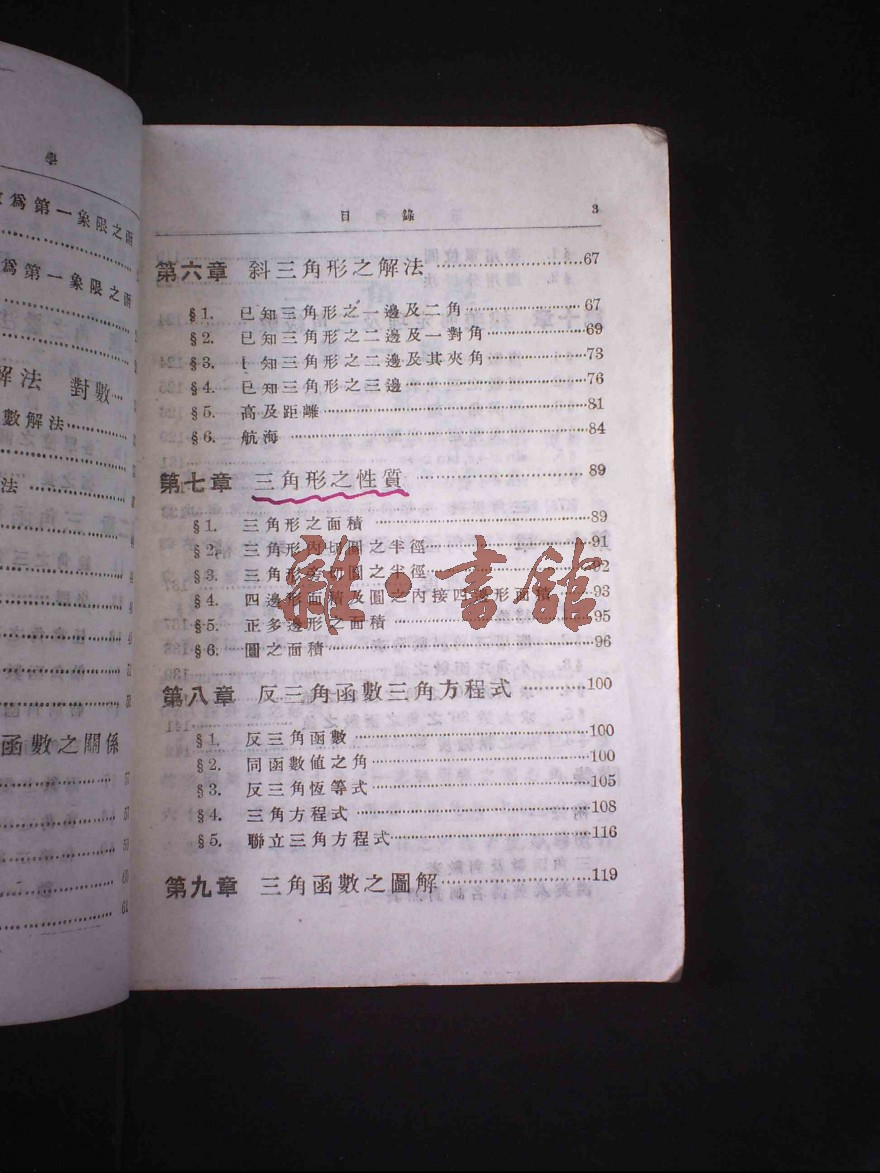 學
為第一象限之所
為第一象限之所
解法 對數
數解法
法
函數之關係
57
57
59
60
61
目錄 3
第六章 斜三角形之解法 67
§1. 已知三角形之一邊及二角 67
§2. 已知三角形之二邊及一對角 69
§3. 知三角形之二邊及其夾角 73
§4. 已知三角形之三邊 76
§5. 高及距離 81
§6. 航海 84
第七章 三角形之性質 89
§1. 三角形之面積 89
§2. 三角形內切圓之半徑 91
§3. 三角形旁切圓之半徑 92
§4. 四邊形面積及圓之內接四邊形面積 93
§5. 正多邊形之面積 95
§6. 圓之面積 96
第八章 反三角函數三角方程式 100
§1. 反三角函數 100
§2. 同函數值之角 100
§3. 反三角恆等式 105
§4. 三角方程式 108
§5. 聯立三角方程式 116
第九章 三角函數之圖解 119
雜·書館